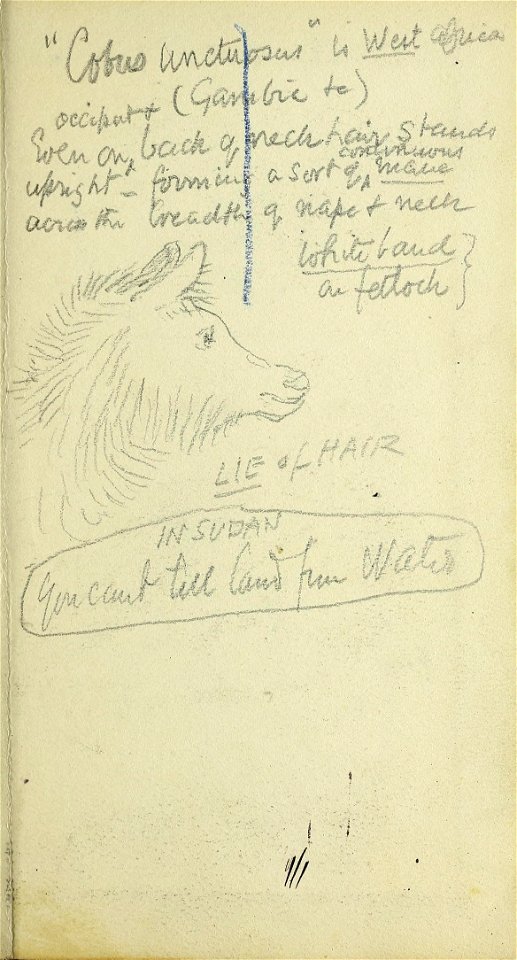 "Cobus Unctuosus" is West Africa
(Gambie &c)
occiput &
Even on ^ back of neck hair stands
continuous
upright - forming a sort of ^ mane
across the breadth of nape & neck
White band
on fetlock
LIE of HAIR
IN SUDAN
You cant tell land from Water